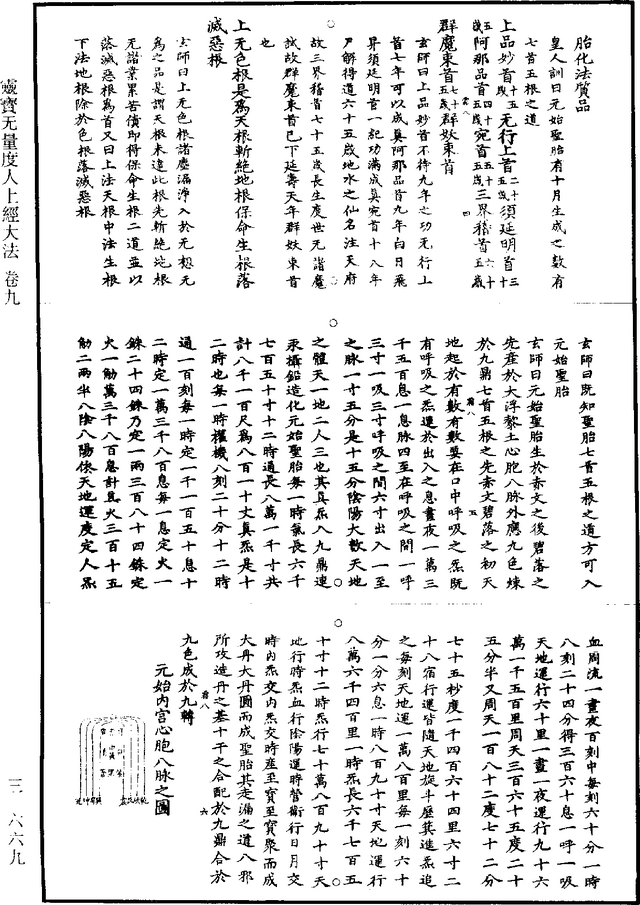 胎化法質品
皇人訓曰元始聖胎有十月生成之數有
七首五根之道
上品妙首五十歲无行上首二十五歲須延明首三十
五歲阿那品首四十五歲宛首五十五歲三界稽首六十五歲
群魔束首七十五歲群妖束首
玄師曰上品妙首不待九年之功无行上
首七年可以成真阿那品首九年白日飛
昇須延明首一紀功滿成真宛首十八年
尸解得道六十五歲地水之仙名注天府
故三界稽首七十五歲長生度世无諸魔
試故群魔束首已下延壽天年群妖束首
也
上无色根是爲天根斬絶地根保命生根落
滅惡根
玄師曰上无色根諸塵漏淨入於无想无
爲之品是謂天根未達此根先斬絶地根
无諸業累苦債即得保命生根二道並以
落滅惡根爲首又曰上法天根中法生根
下法地根除於色根落滅惡根
玄師曰既知聖胎七首五根之道方可入
元始聖胎
玄師曰元始聖胎生於赤文之後碧落之
先產於大浮黎土心胞八脉外應九色煉
於九鼎七首五根之先赤文碧落之初天
地起於有數有數要在口中呼吸之炁既
有呼吸之炁還於出入之息晝夜一萬三
千五百息一息脉四至在呼吸之間一呼
三寸一吸三寸呼吸之間六寸出入一至
之脉一寸五分是十五分陰陽大數天地
之體天一地二人三也其真炁入九鼎連
汞攝鉛造化元始聖胎每一時氣長六千
七百五十寸十二時通長八萬一千寸共
計八千一百尺爲八百一十丈真炁是十
二時也每一時權機八刻二十分十二時
通一百刻每一時定一千一百五十息十
二時定一萬三千八百息每一息定火一
銖二十四銖乃定一兩三百八十四銖定
火一觔萬三千八百息計真火三百十五
觔二兩半八陰八陽依天地運度定人炁
血周流一晝夜百刻中每刻六十分一時
八刻二十四分得三百六十息一呼一吸
天地運行六十里一晝一夜運行九十六
萬一千五百里周天三百六十五度二十
五分半又周天一百八十二度七十二分
七十五秒度一千四百六十四里六寸二
十八宿行運皆隨天地旋斗歷其進炁追
之每刻天地運一萬八百里每一刻六十
分一分六息一時八百九十寸天地運行
八萬六千四百里一時炁長六千七百五
十寸十二時炁行七十萬八百九十寸天
地行時炁血行陰陽運時營衛行日月交
時內炁交內炁交時產至寶至寶聚而成
大丹大丹圓而成聖胎其走漏之道八邪
所攻造丹之基十干之合配於九鼎合於
九色成於九轉
元始內宮心胞八脉之圖
靈寶无量度人上經大法 卷九
三‧六六九